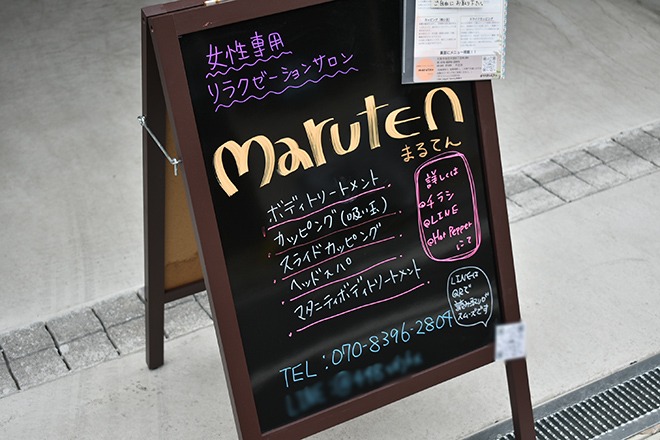 女性専用
リラクゼーションサロン
maruten
まるてん
ボディトリートメント
カッピング(吸い玉)
スライドカッピング
ヘッドスパ
マタニティボディトリートメント
詳しくは
@チラシ
@LINE
@Hot Pepper
にて
LINEは
QRで
読み取りが
スムーズです
TEL:070-8396-2804